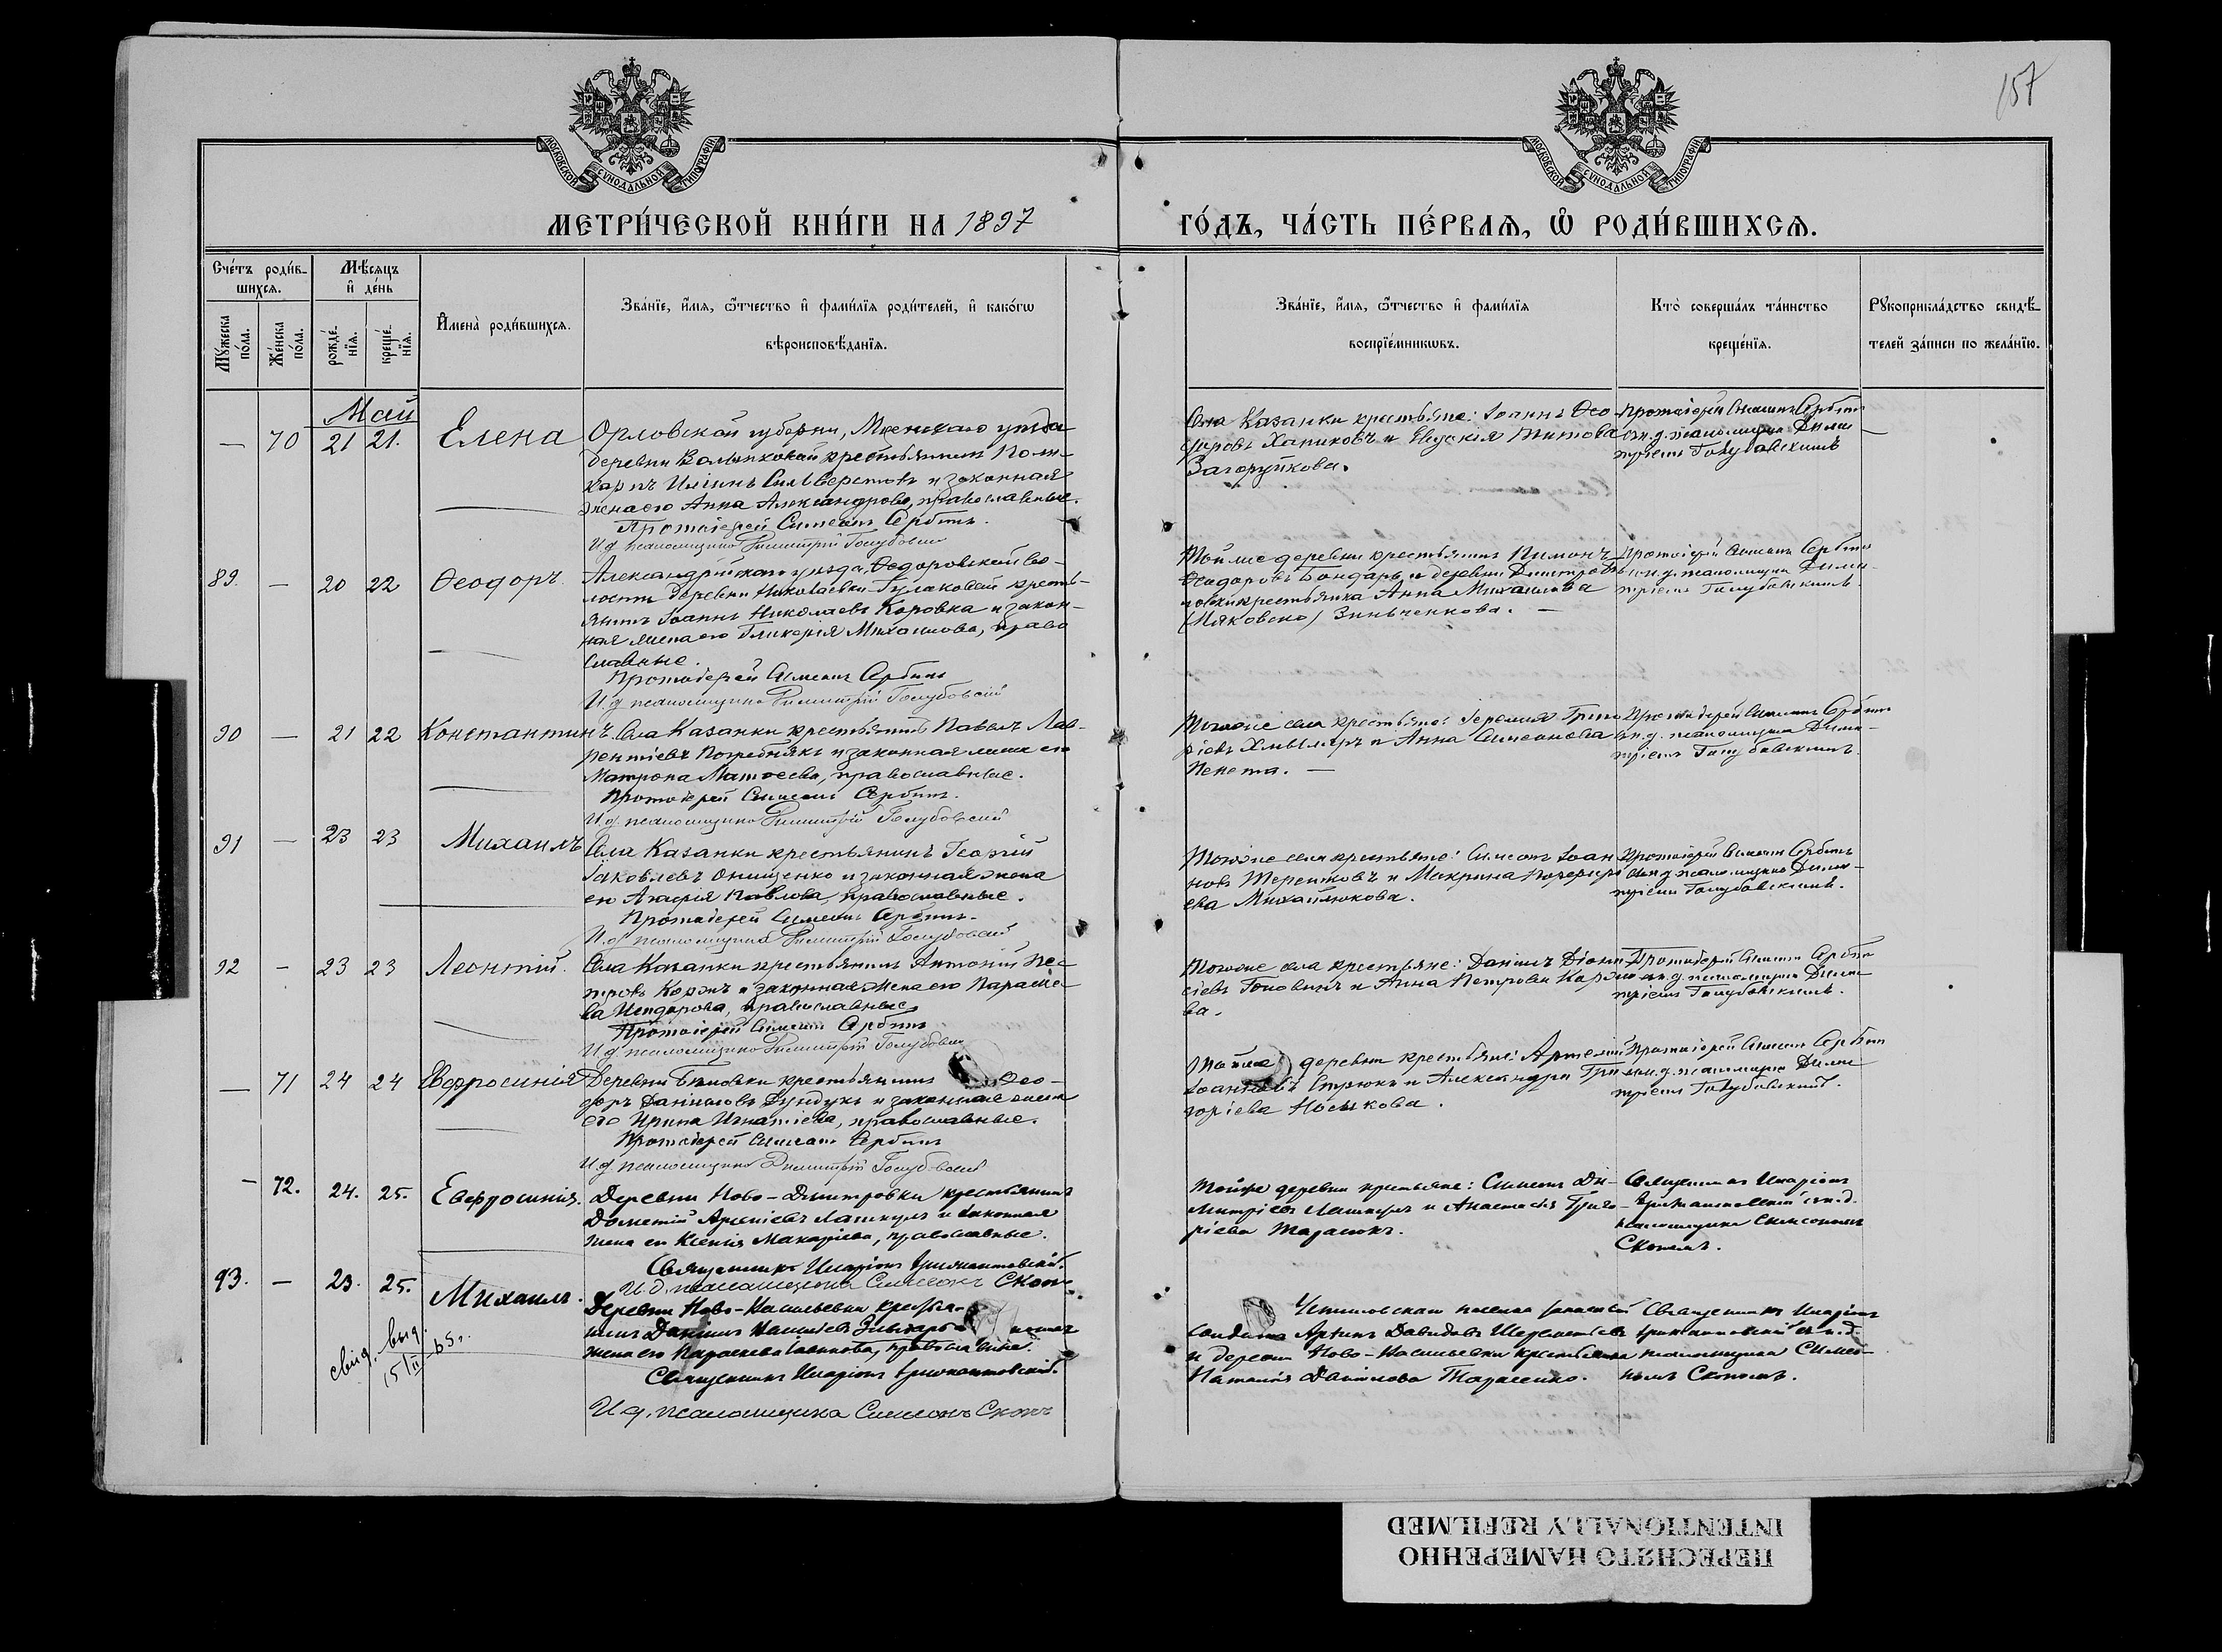 157
МОСКОВСКОЙ СѴНОДАЛЬНОЙ ТИПОГРАФІИ
МОСКОВСКОЙ СѴНОДАЛЬНОЙ ТИПОГРАФІИ
МЕТРИ́ЧЕСКОЙ КНИ́ГИ НА 1897
ГО́ДЪ, ЧА́СТЬ ПЕ́РВАѦ, Ѽ РОДИ́ВШИХСѦ.
Сче́тъ роди́в-
шихсѧ.
Мѣ́сѧцъ
и҆ де́нь
Мꙋ́жеска
по́ла.
Же́нска
по́ла.
рожде́-
нїѧ.
креще́-
нїѧ.
И҆мена̀ роди́вшихсѧ.
Зва́нїе, и҆́мѧ, ѻ҆́тчество и҆ фами́лїѧ роди́телей, и҆ како́гѡ
вѣроисповѣ́данїѧ.
Зва́нїе, и҆́мѧ, ѻ҆́тчество и҆ фами́лїѧ
воспрїе́мникѡвъ.
Кто̀ соверша́лъ та́инство
креще́нїѧ.
Рꙋкоприкла́дство свидѣ́-
телей за́писи по жела́нїю.
Май
— 70 21 21. Елена
Орловской губерніи, Мценскаго уѣзда
деревни крестьянинъ Поли-
карпъ Ильинъ и законная
жена его Анна Александрова, православные.
Протоіерей Симеонъ Сербинъ.
И.д. псаломщика Димитрій Голубовскій
Села Казанки крестьяне: Іоаннъ Ѳео-
доровъ Хапиковъ и Евдокія Титова
Загоруйкова.
Протоіерей Симеонъ Сербинъ
съ и.д. псаломщика Дими-
тріемъ Голубовскимъ
89. — 20 22 Ѳеодоръ.
Александрійскаго уѣзда, Ѳедоровской во-
лости деревни Николаевки-Гулаковой кресть-
янинъ Іоаннъ Николаевъ Коровка и закон-
ная жена его Гликерія Михаилова, право
славные.
Протоіерей Симеонъ Сербинъ
И.д. псаломщика Димитрій Голубовскій
Той же деревни крестьянинъ Пименъ
Ѳеодоровъ Бондарь и деревни Дмитров
ки крестьянка Анна Михаилова
Зинъченкова. —
Протоіерей Симеонъ Сербинъ
съ и.д. псаломщика Дими-
тріемъ Голубовскимъ.
90 — 21 22 Константинъ.
Села Казанки крестьянинъ Павелъ Лав-
рентіевъ Погребнякъ и законная жена его
Матрона Матѳеева, православные.
Протоіерей Симеонъ Сербинъ.
И.д. псаломщика Димитрій Голубовскій
Того же села крестьяне: Іеремія Григо
ріевъ и Анна Симеонова
Пенета. —
Протоіерей Симеонъ Сербинъ
съ и.д. псаломщика Дими-
тріемъ Голубовскимъ.
91 — 23 23 Михаилъ
Села Казанки крестьянинъ Георгій
Іаковлевъ Онищенко и законная жена
его Агафія Павлова, православные.
Протоіерей Симеонъ Сербинъ.
И.д. псаломщика Димитрій Голубовскій
Того же села крестьяне: Симеонъ Іоан
новъ Терентковъ и Макрина Порфирі
ева Михайлюкова.
Протоіерей Симеонъ Сербинъ
съ и.д. псаломщика Дими-
тріемъ Голубовскимъ.
92 — 23 23 Леонтій.
Села Казанки крестьянинъ Антоній Пе-
тровъ Коржъ и законная жена его Параске-
ва Исидорова, православные
Протоіерей Симеонъ Сербинъ
И.д. псаломщика Димитрій Голубовскій
Того же села крестьяне: Даніилъ Діони-
сіевъ Головинъ и Анна Петрова Коржо
ва.
Протоіерей Симеонъ Сербинъ
съ и.д. псаломщика Дими
тріемъ Голубовскимъ.
— 71 24 24 Евфросинія
Деревни крестьянинъ Ѳео-
доръ Даніиловъ Бундукъ и законная жена
его Ирина Игнатіева, православные.
Протоіерей Симеонъ Сербинъ
И.д. псаломщика Димитрій Голубовскій
Той же деревни крестьяне: Артемій
Іоанновъ и Александра Гри
горіева Носикова.
Протоіерей Симеонъ Сербинъ
съ и.д. псаломщика Дими
тріемъ Голубовскимъ.
— 72. 24. 25. Евфросинія.
Деревни Ново-Димитровки крестьянинъ
Дометій Арсеніевъ и законная
жена его Ксенія Макаріева, православные.
Священникъ Иларіонъ
И.д. псаломщика Симеонъ Скопъ
Той же деревни крестьяне: Симеонъ Ди-
митріевъ и Анастасія Григо-
ріева Тарасюкъ.
Священникъ Иларіонъ
съ и.д.
псаломщика Симеономъ
Скопомъ.
93. — 23. 25. Михаилъ.
свид. выд.
15/II 65 г.
Деревни Ново-Васильевки крестья-
нинъ Даніилъ
жена его Параскева православные.
Священникъ Иларіонъ
И.д. псаломщика Симеонъ Скопъ
солдатъ Давидовъ
и деревни Ново-Васильевки крестьянка
Наталія Даніилова Тарасенко.
Священникъ Иларіонъ
съ и.д.
псаломщика Симео-
номъ Скопомъ.
ПЕРЕСНЯТО НАМЕРЕННО
INTENTIONALLY REFILMED